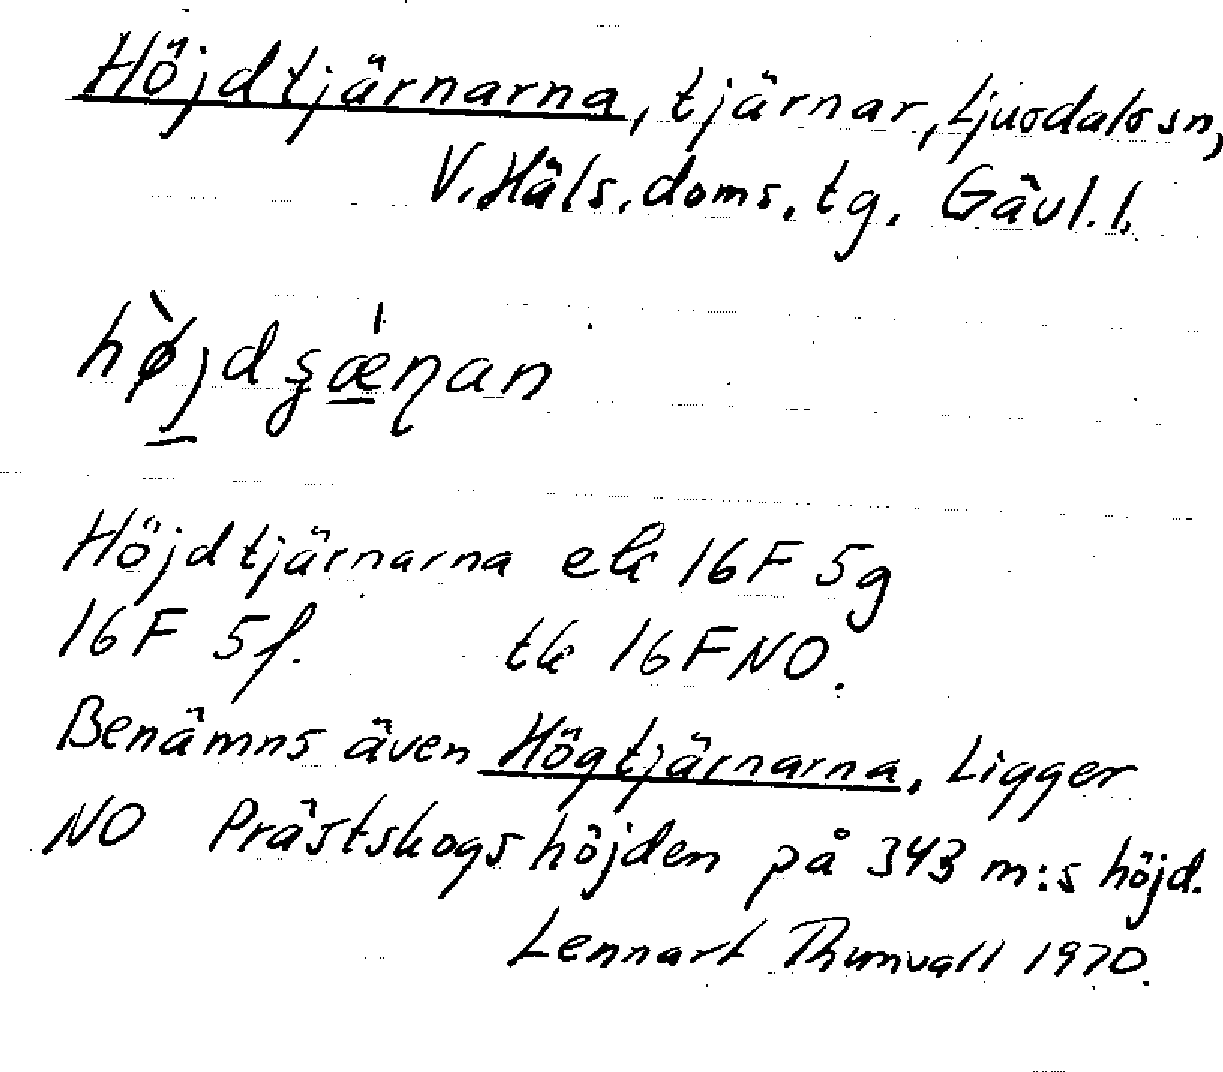 Höjdtjärnarna, tjärnar, Ljusdals sn,
V. Häls. doms. tg. Gävl. l.
hø̀jdʂæ̀ɳan
Höjdtjärnarna ek 16F 5g
16F 5f. tk 16F NO.
Benämns även Högtjärnarna. Ligger
NO Prästskogshöjden på 343 m:s höjd.
Lennart Thunvall 1970.